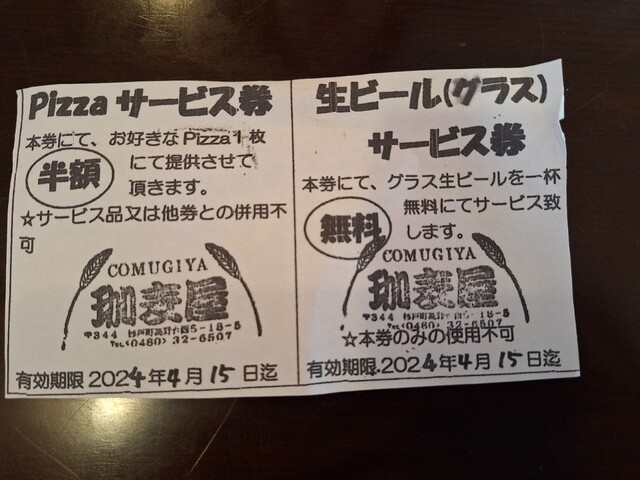 Pizza サービス券
本券にて、お好きな Pizza 1 枚
半額
にて提供させて
頂きます。
☆サービス品又は他券との併用不
可
COMUGIYA
珈麦屋
〒344 杉戸町高野台西5-18-5
TEL(0480) 32-6507
有効期限 2024年4月15日迄
生ビール(グラス)
サービス券
本券にて、グラス生ビールを一杯
無料
無料にてサービス致
します。
COMUGIYA
珈麦屋
〒344 杉戸町高野台西5-18-5
TEL(0480) 32-6507
☆本券のみの使用不可
有効期限.2024年4月15日迄